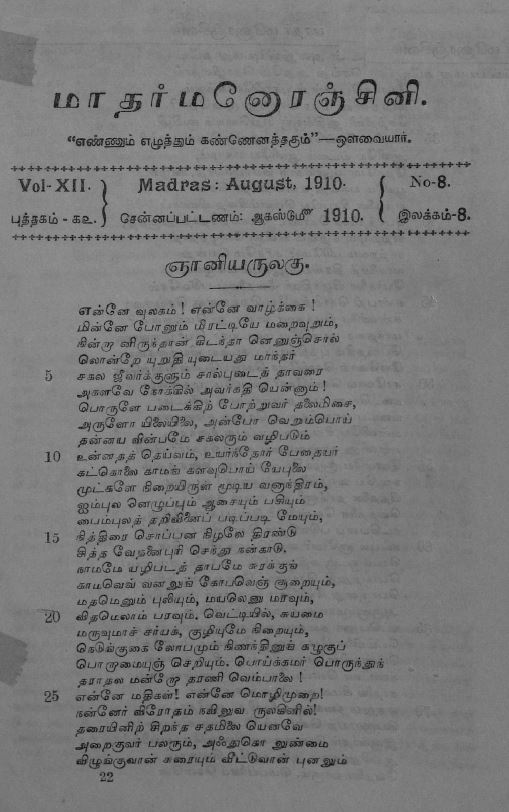 மாதர்மனோரஞ்சினி.
“எண்ணும் எழுத்தும் கண்ணெனத்தகும்”—ஔவையார்.
Vol-XII. Madras: August, 1910. No-8.
புத்தகம் - கஉ. சென்னப்பட்டணம்: ஆகஸ்டுமீ 1910. இலக்கம்-8.
ஞானியருலகு.
என்னே வுலகம் ! என்னே வாழ்க்கை !
மின்னே போனும் மிரட்டியே மறைவுறும்,
நின்று னிருந்தான் கிடந்தா னெனுஞ்சொல்
லொன்றே யுறுதி யுடையது மாந்தர்
5 சகல ஜீவர்க்குளும் சால்புடைத் தாவரை
அகளவே நோக்கில் அவர்கதி யென்னும் !
பொருளே படைக்கிற் போற்றுவர் தலைமிசை,
அருளோ யிலையிலை, அன்போ வெறும்பொய்
தன்னய வின்பமே சகலரும் வழிபடும்
10 உன்னதத் தெய்வம், உயர்ந்தோர் பேதையர்
கட்கொலை காமங் களவுபொய் யேபுலை
முட்களே நிறையிருள் மூடிய வனாந்திரம்,
ஐம்புல னெழுப்பும் ஆசையும் பசியும்
பைம்புலத் தறிவினைப் படிப்படி மேயும்,
15 நித்திரை சொப்பன நிழலே திரண்டு
சித்த வேதனைபுரி செந்து கன்காடு.
நாமமே யழிபடத் தாபமே சுரக்குங்
காமவெவ் வனலுங் கோபவெஞ் சூறையும்,
மதமெனும் புலியும், மயலெனு மரவும்,
20 விதமெலாம் பரவும். வெட்டியில், சுயமை
மருவுமாச் சர்யக், குழியுமே நிறையும்,
நெடுங்குகை லோபமும் கிணந்தினுங் கழுகுப்
பொறாமையுஞ் செறியும். பொய்க்கமர் பொருந்துந்
தராதல மன்றோ தரணி வெம்பாலை !
25 என்னே மதிகள்! என்னே மொழிமுறை!
நன்னேர் விரோதம் நவினுவ ருலகினில்!
தரையினிற் சிறந்த சதமிலை யெனவே
அறைகுவர் பலரும், அஃதுகொ லுண்மை
விழுங்குவான் சுரையும் வீட்டுவான் புனலும்
22